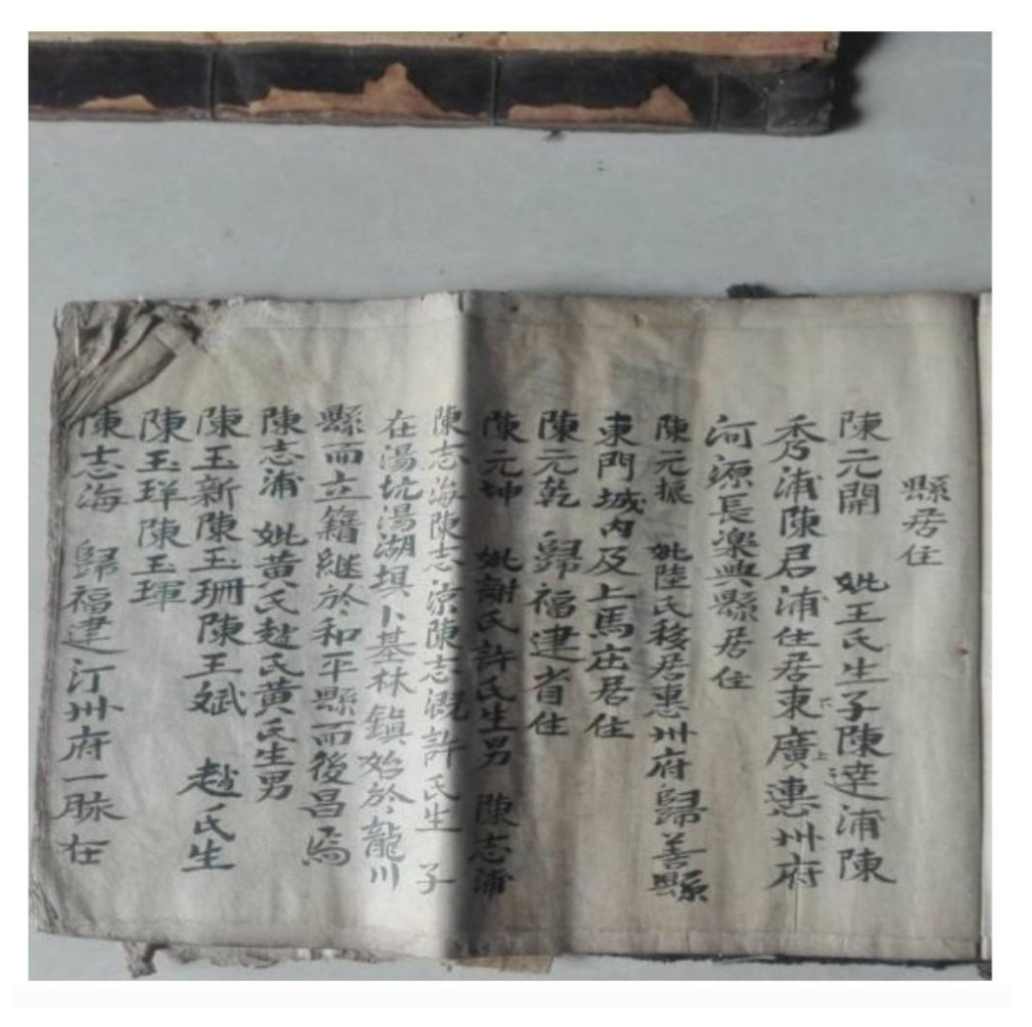 縣居住
陳元開 妣王氏生子陳達浦陳
秀浦陳君浦住居東下廣上惠州府
河源長樂興縣居住
陳元振 妣陸氏移居惠州府歸善縣
東門城內及上馬庄居住
陳元乾 歸福建省住
陳元坤 妣謝氏許氏生男 陳志浦
陳志海陳志源陳志溉許氏生 子
在湯坑湯湖埧卜基林鎮始於龍川
縣而立籍継於和平縣而後昌焉
陳志浦 妣黄氏赵氏黄氏生男
陳玉新陳玉珊陳玉斌 赵氏生
陳玉珜陳玉琿
陳志海 歸福建汀州府一脉在